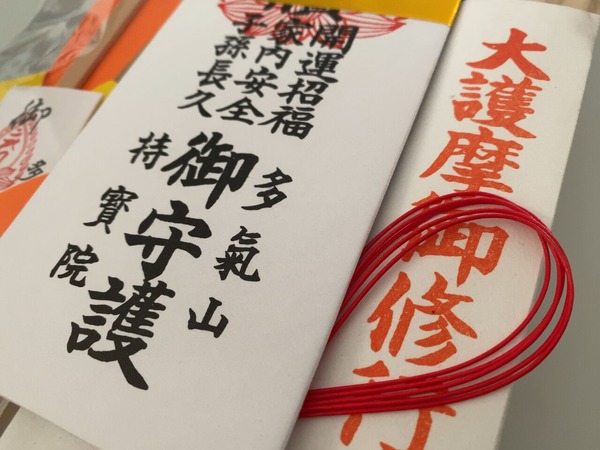 大護摩御修行
開運招福
家内安全
子孫長久
多氣山
御守護
持寶院
多
御